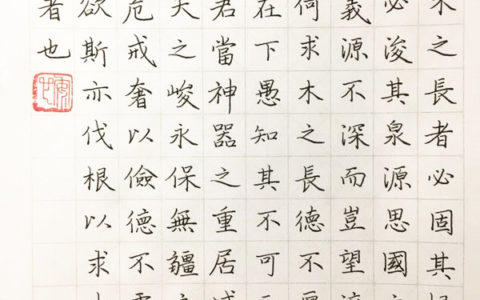 木之長者必固其
必浚其泉源思國
義源不深而豈望
求木之長德不
在下愚知其不可
君當神器之重居
天之峻永保無疆
危戒奢以儉德不
欲斯亦伐根以求
者也